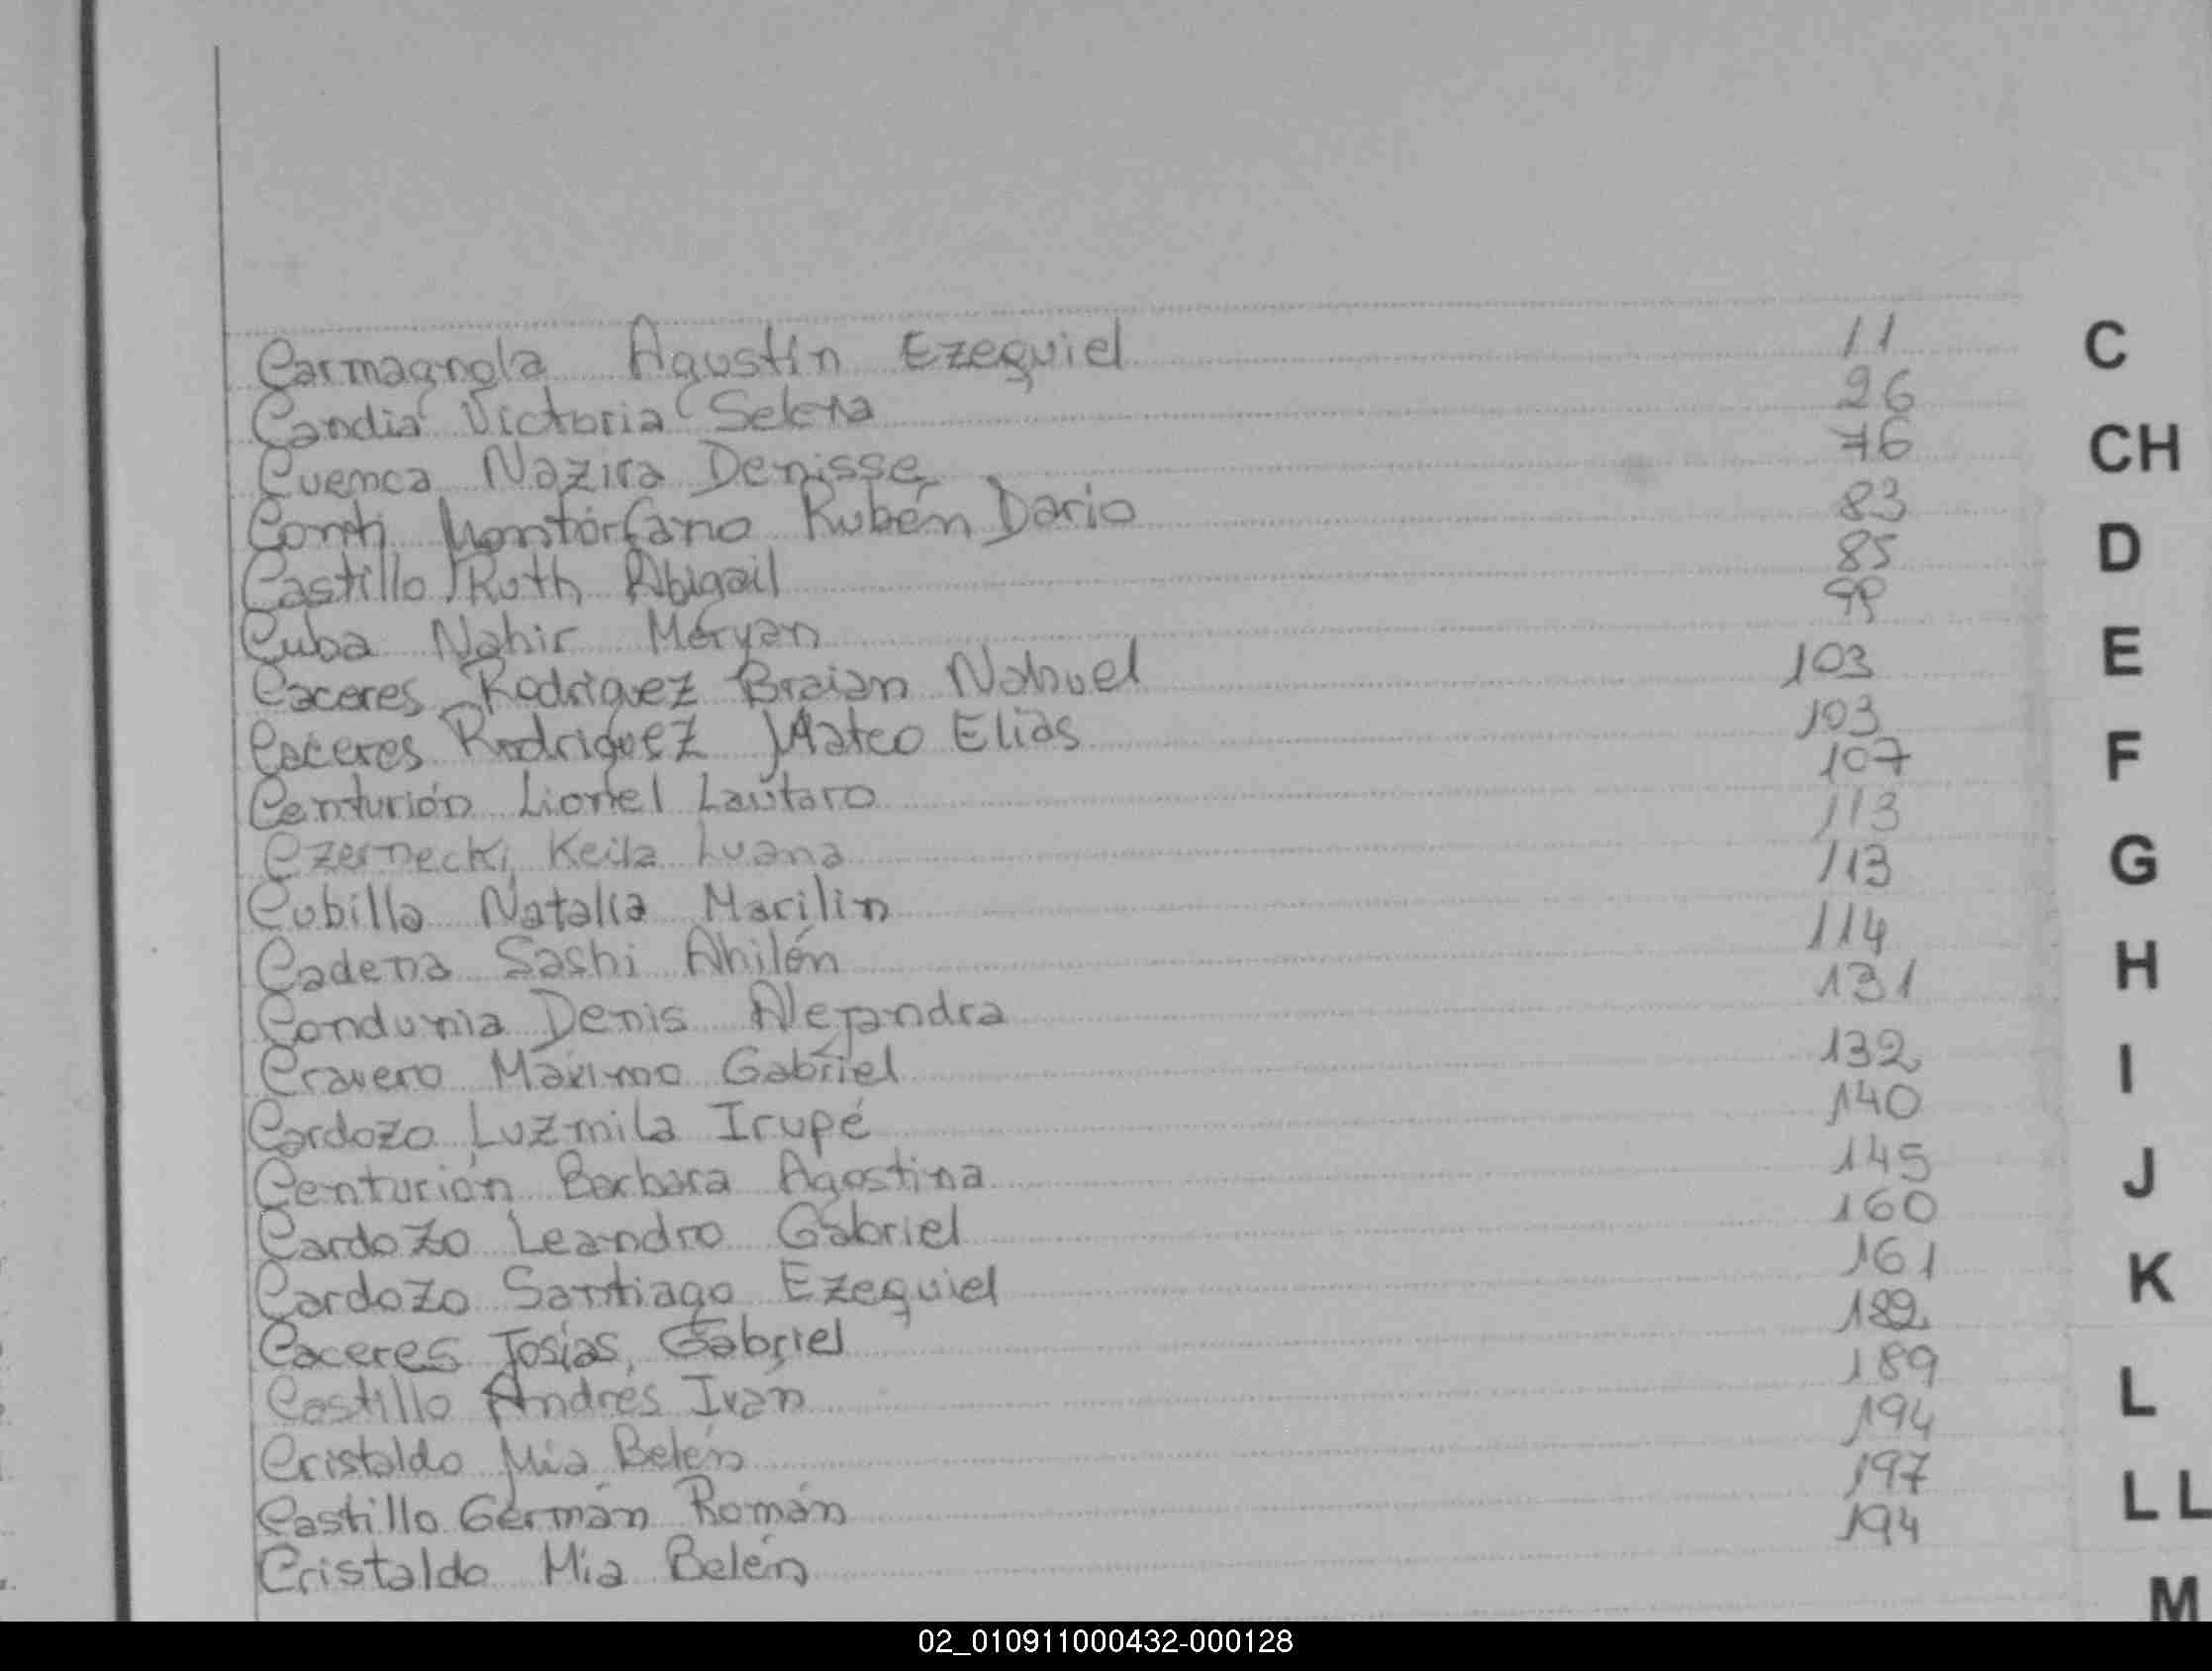 Carmagnola Agustín Ezequiel 11
Candia Victoria Selena 26
Cuenca Nazira Denisse 76
Conti Montórfano Rubén Dario 83
Castillo Ruth Abigail 85
Cuba Nahir Meryan
Caceres Rodriguez Braian Nahuel 103
Caceres Rodriguez Mateo Elias 103
Centurión Lionel Lautaro 107
Czernecki Keila Luana 113
Cubilla Natalia Marilin 113
Cadena Sashi Ahilén 114
Condunia Denis Alejandra 131
Cravero Máximo Gabriel 132
Cardozo Luzmila Irupé 140
Centurión Barbara Agostina 145
Cardozo Leandro Gabriel 160
Cardozo Santiago Ezequiel 161
Caceres Josías Gabriel 182
Castillo Andrés Iván 189
Cristaldo Mia Belén 194
Castillo Germán Román 197
Cristaldo Mia Belén 194
C
CH
D
E
F
G
H
I
J
K
L
LL
M
02_010911000432-000128